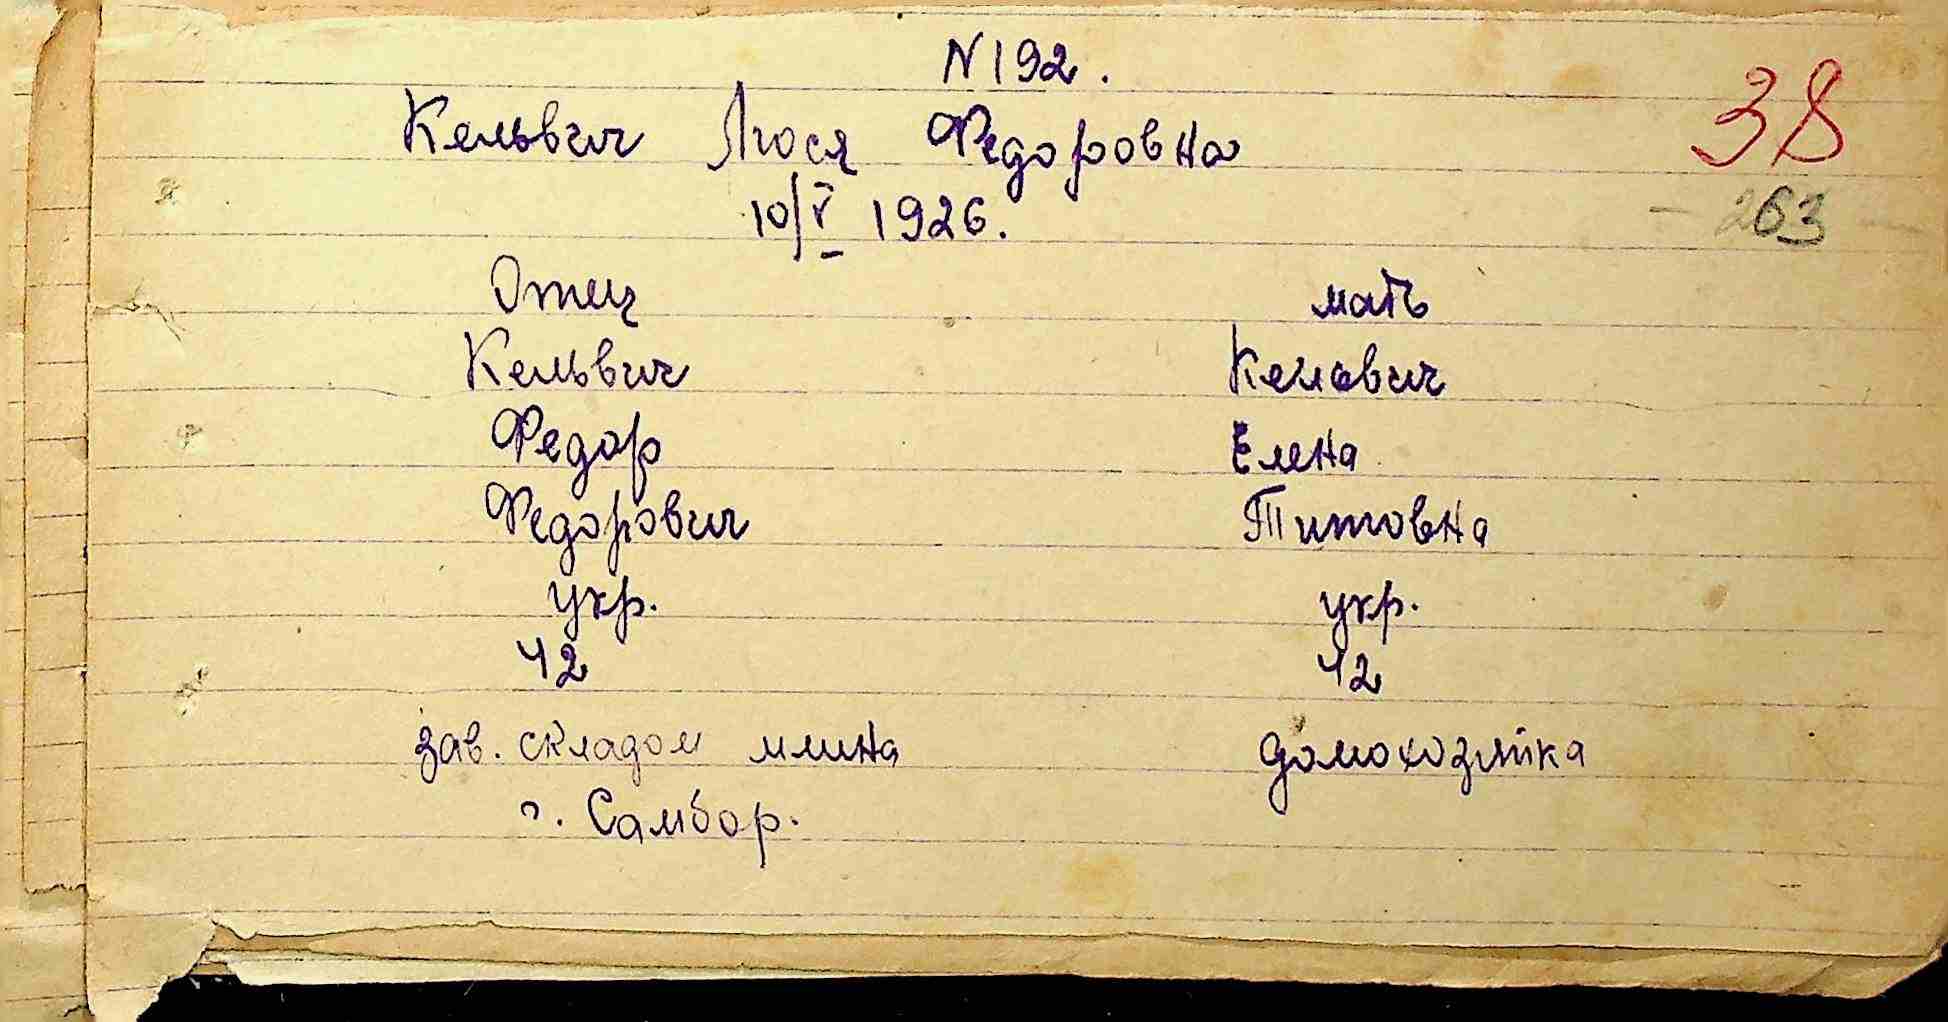 N192.
38
Кельвич Люся Федоровна
263
10/V 1926.
Отец мать
Кельвич Кельвич
Федор Елена
Федорович Титовна
укр. укр.
42 42
зав. складом млина домохозяйка
г. Самбор.